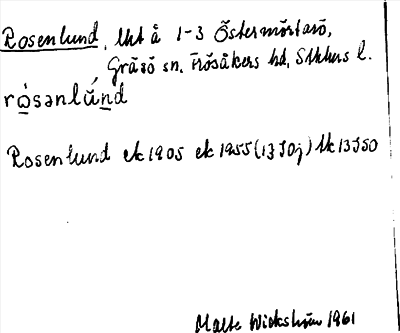 Rosenlund, lht å 1-3 Östermörtarö,
Gräsö sn. Frösåkers hd, Sthlms l.
rósənlúnd
Rosenlund ek 1905 ek 1955 (13 I 0j) tk 13 I SO
Malte Wickström 1961